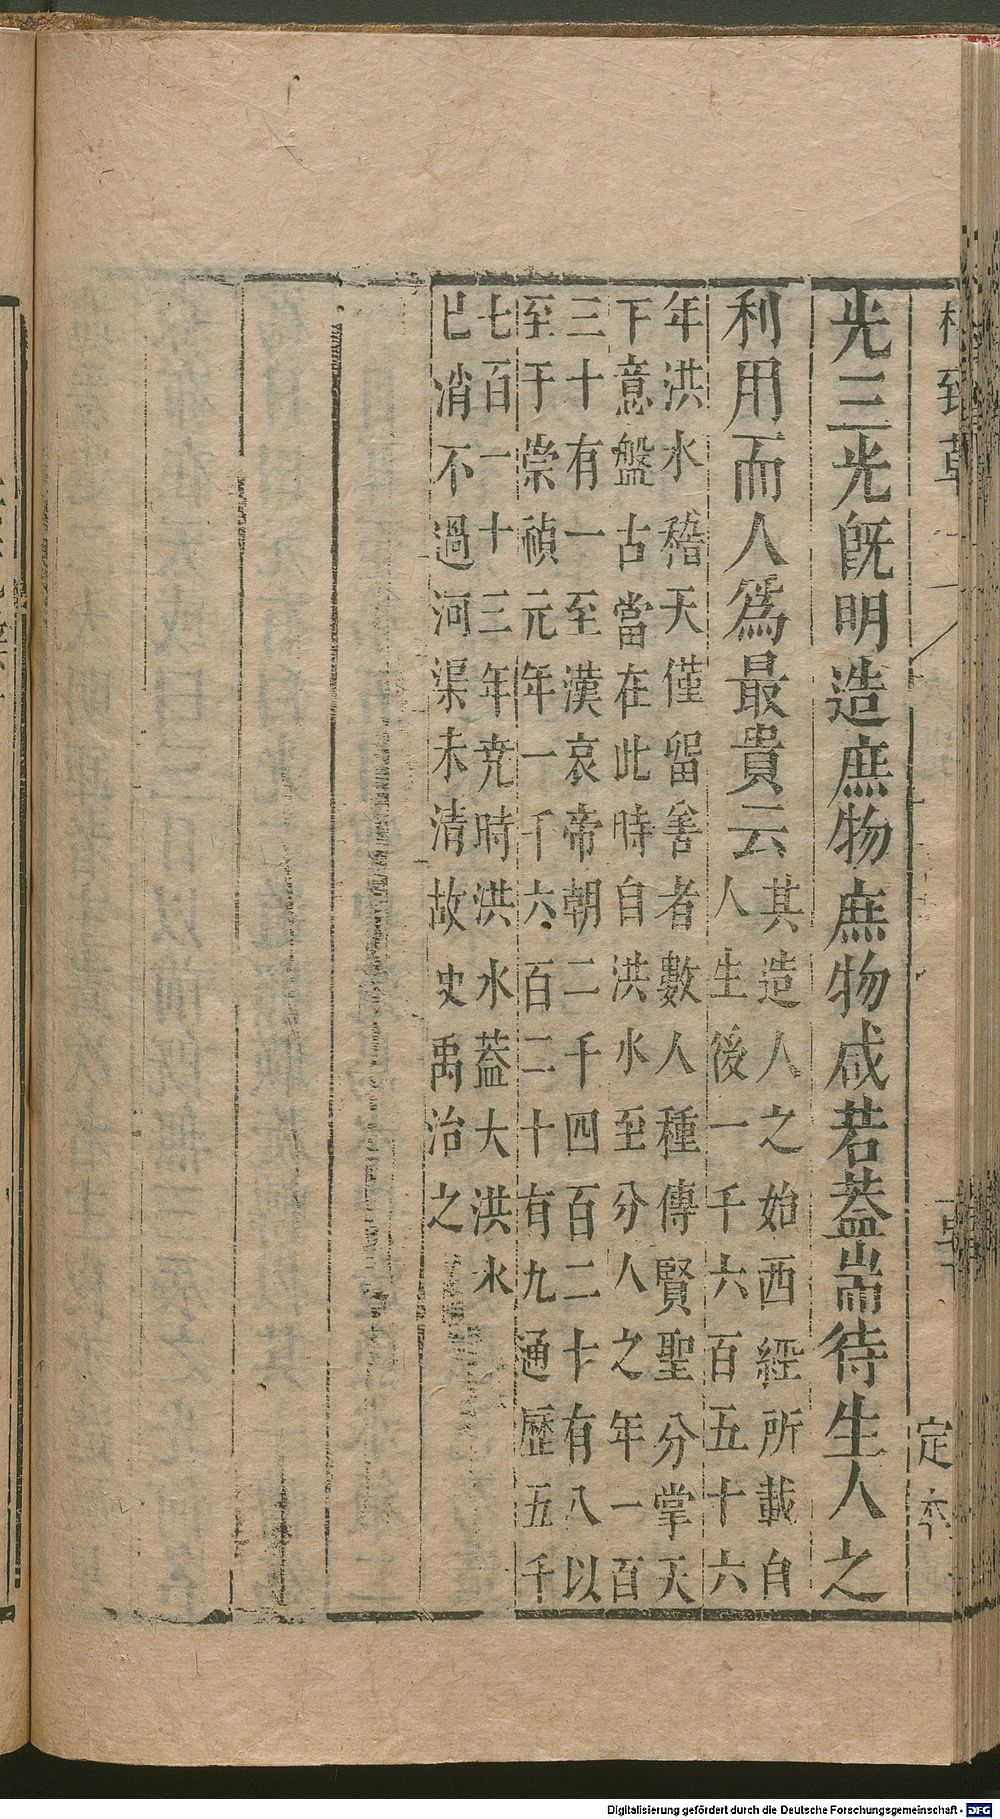 光三光旣明造庶物庶物咸若蓋耑待生人之
利用而人爲最貴云
其造人之始西經所載自
人生後一千六百五十六
年洪水稽天僅留善者數人種傳賢聖分掌天
下意盤古當在此時自洪水至分人之年一百
三十有一至漢哀帝朝二千四百二十有八以
至于崇禎元年一千六百二十有九通歷五千
七百一十三年尭時洪水蓋大洪水
已消不過河渠未清故史禹治之
致草
定
Digitalisierung gefördert durch die Deutsche Forschungsgemeinschaft - DFG